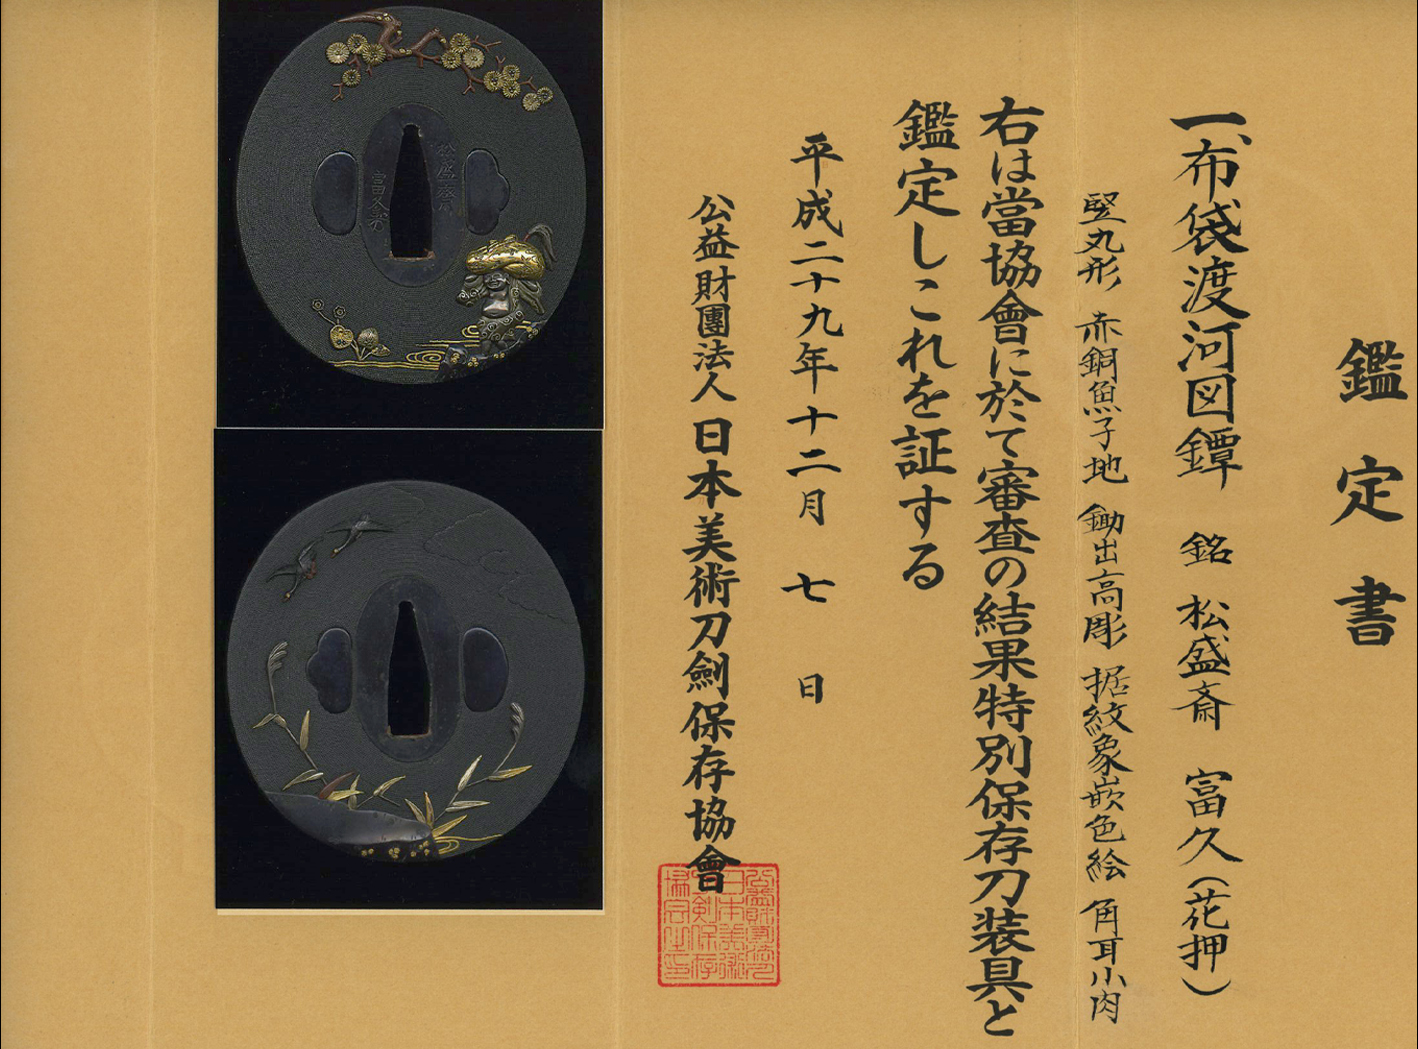 鑑定書
一、布袋渡河図鐔 銘 松盛斎 富久(花押)
竪丸形 赤銅魚子地 鋤出高彫 据紋象嵌色絵 角耳小肉
右は當協會に於て審査の結果特別保存刀装具と
鑑定しこれを証する
平成二十九年十二月 七 日
公益財團法人 日本美術刀劍保存協會
松盛斎
富久